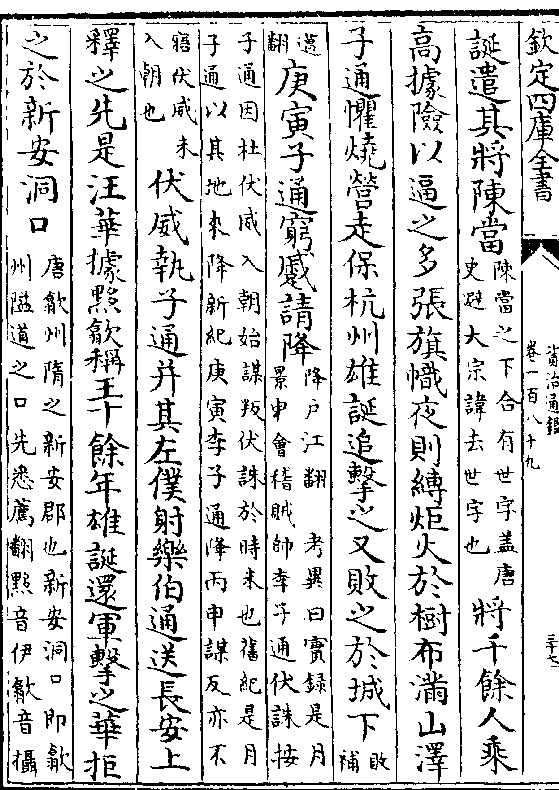 欽定四庫全書
資治通鑑
卷一百八十九
三十七
誕遣其將陳當
陳當之下合有世字蓋唐
史避太宗諱去世字也
將千餘人乘
高據險以逼之多張旗幟夜則縛炬火於樹布滿山澤
子通懼燒營走保杭州雄誕追擊之又敗之於城下
敗補
邁翻
庚寅子通窮蹙請降
降户江翻 考異曰實録是月
景申會稽賊帥李子通伏誅按
子通因杜伏威入朝始謀叛伏誅於時未也舊紀是月
子通以其地來降新紀庚寅李子通降丙申謀反亦不
寤伏威未
入朝也
伏威執子通并其左僕射樂伯通送長安上
釋之先是汪華據黟歙稱王十餘年雄誕還軍擊之華拒
之於新安洞口
唐歙州隋之新安郡也新安洞口即歙
州隘道之口先悉薦翻黟音伊歙音攝